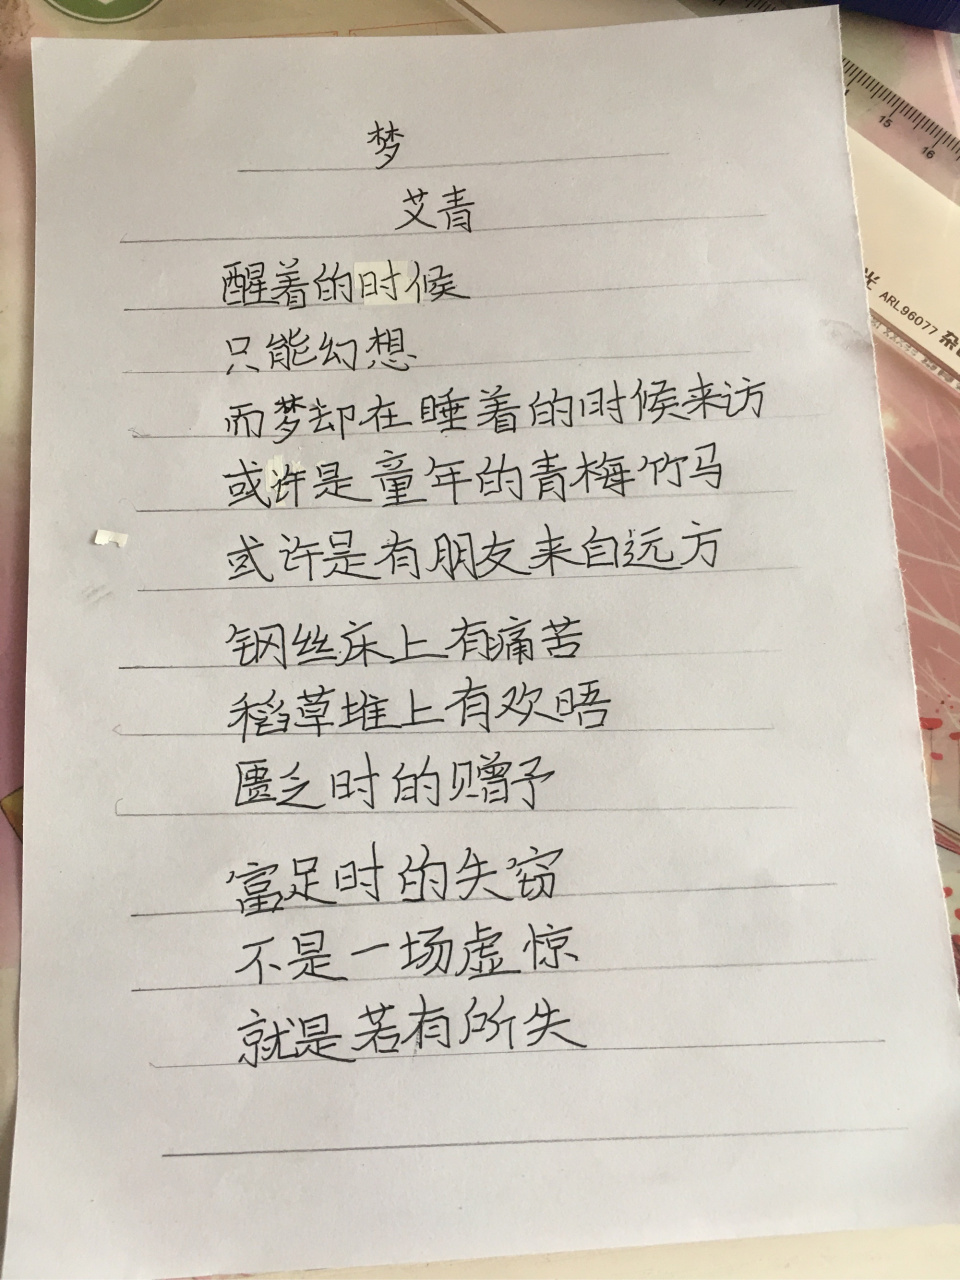 梦
艾青
醒着的时候
只能幻想
而梦却在睡着的时候来访
或许是童年的青梅竹马
或许是有朋友来自远方
钢丝床上有痛苦
稻草堆上有欢晤
匮乏时的赠予
富足时的失窃
不是一场虚惊
就是若有所失
15
16
光 ARL96077